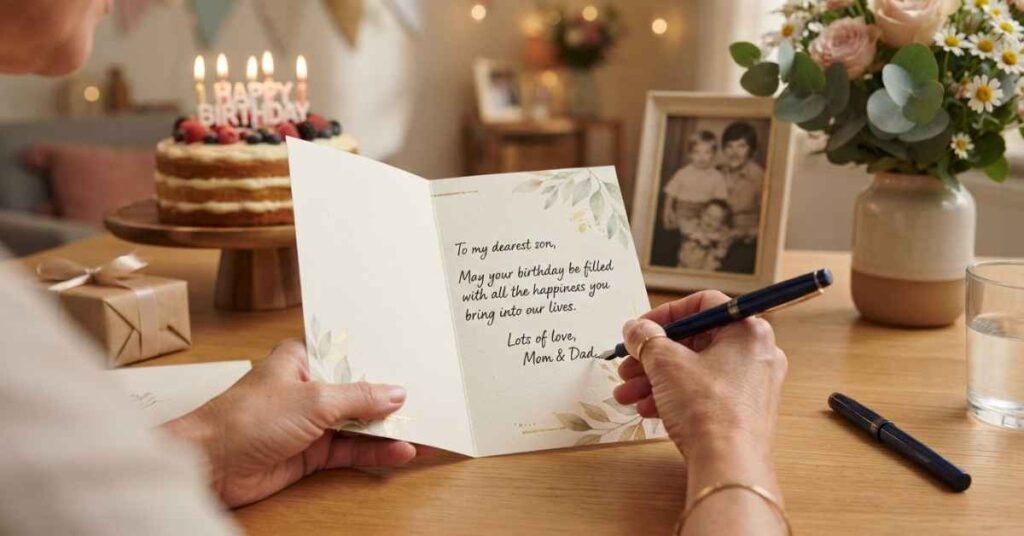 HAPPY
BIRTHDAY
To my dearest son,
May your birthday be filled
with all the happiness you
bring into our lives.
Lots of love,
Mom & Dad.